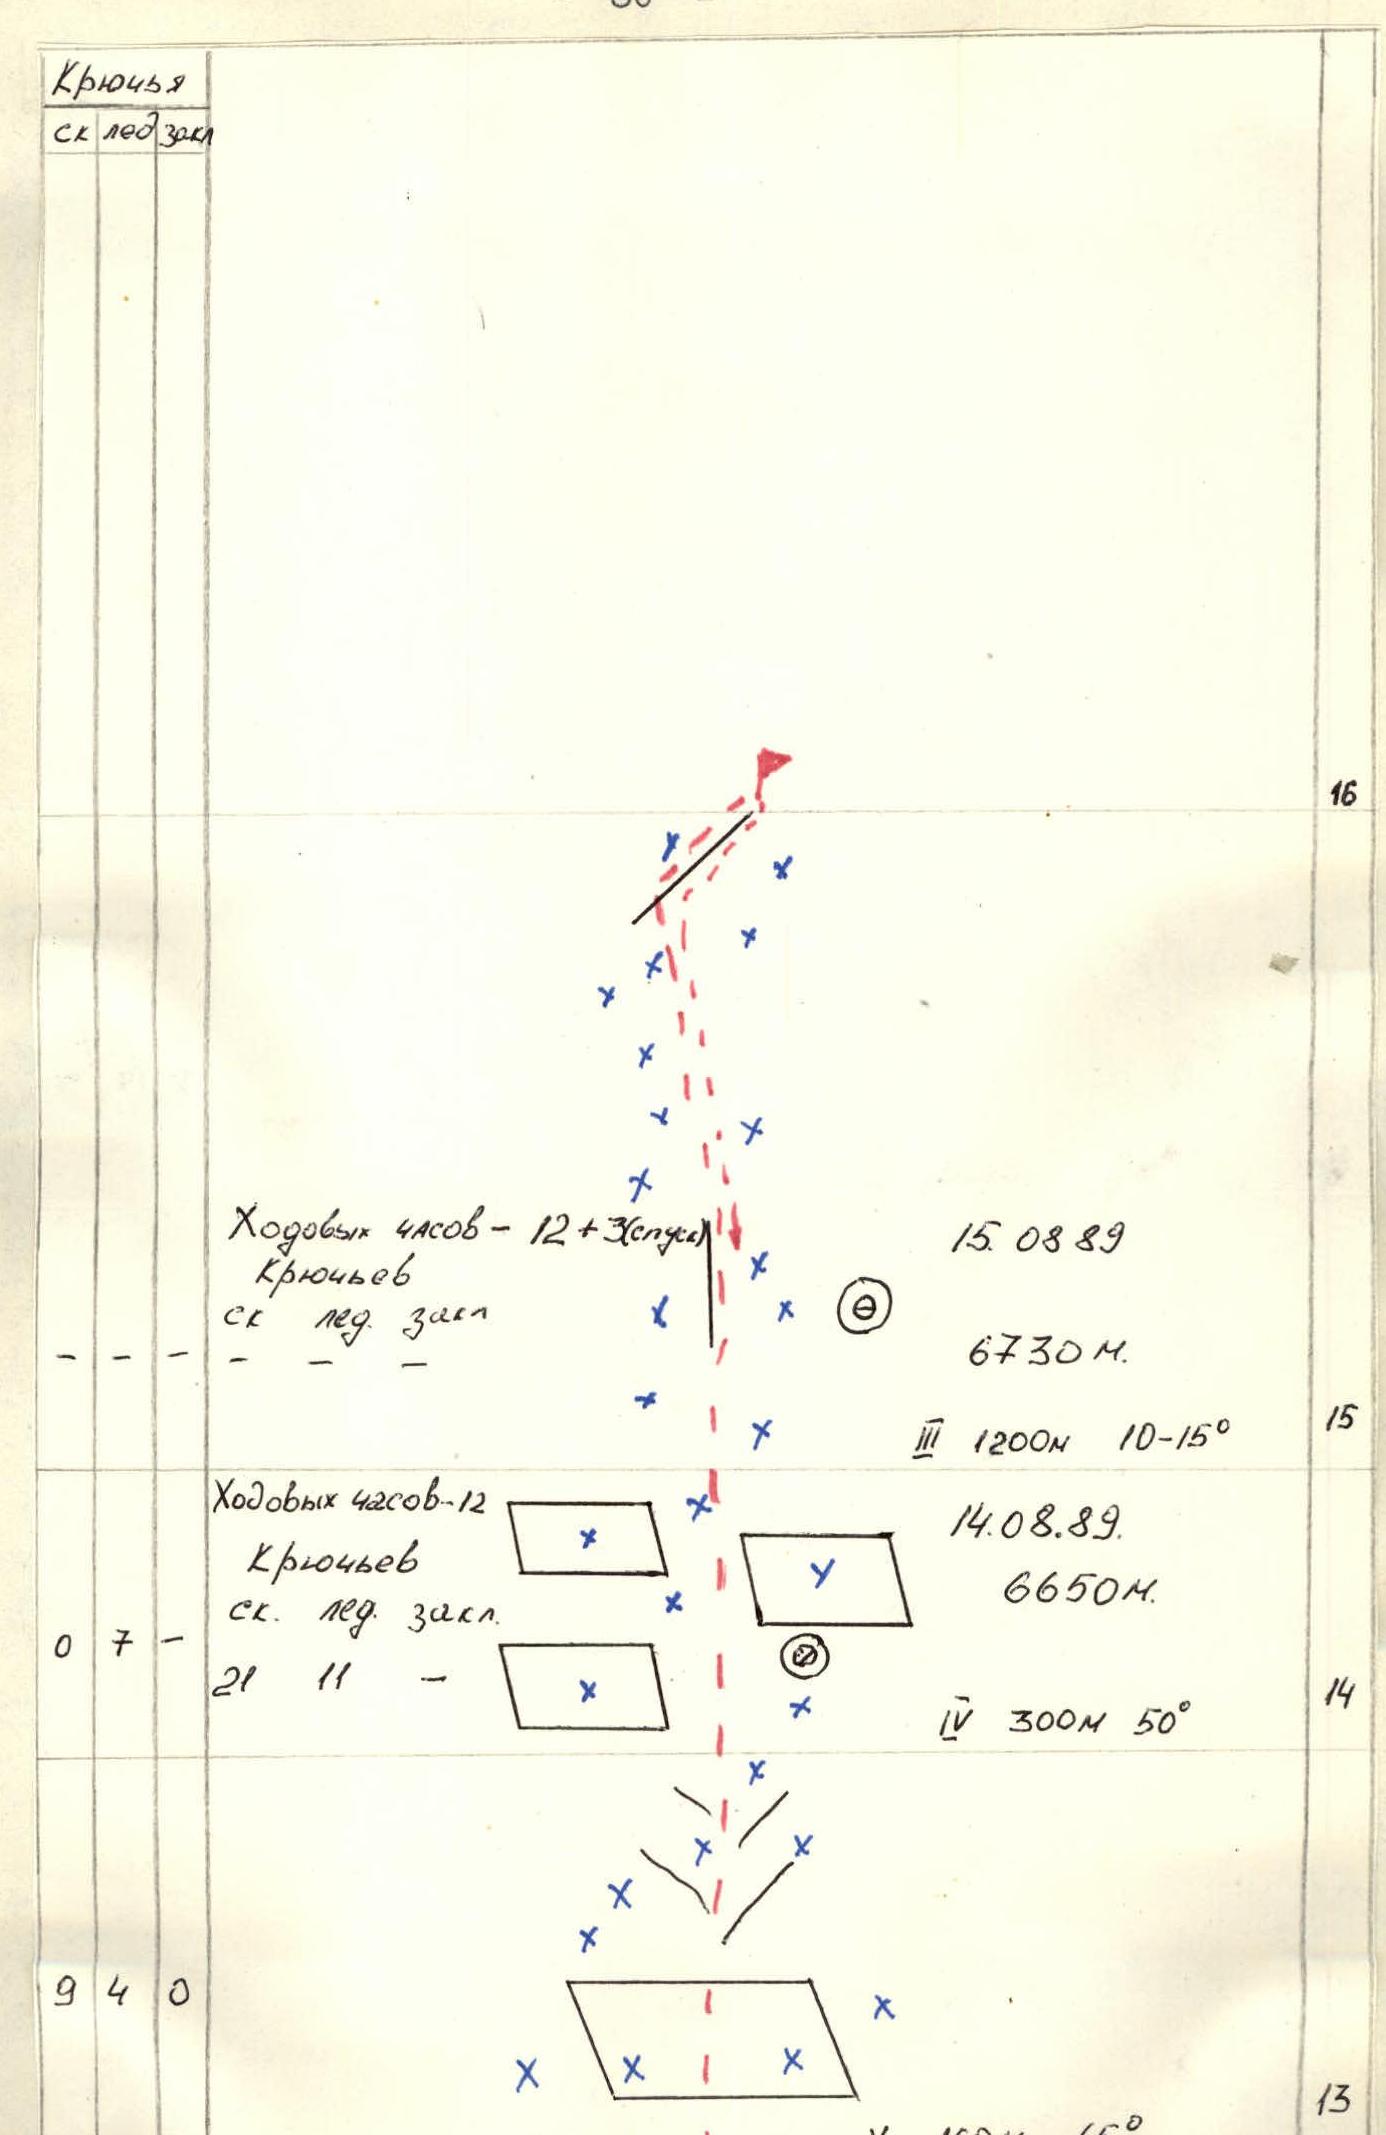 Крючья
ск лед закл
16
Ходовых часов - 12 + 3(спуск)
15.0889
Крючьев
ск лед. закл
6730м.
- - - - - -
15
III 1200м 10-15°
Ходовых часов-12
14.08.89.
Крючьев
6650м.
ск. лед. закл.
0 7 -
21 11 -
14
IV 300м 50°
9 4 0
13